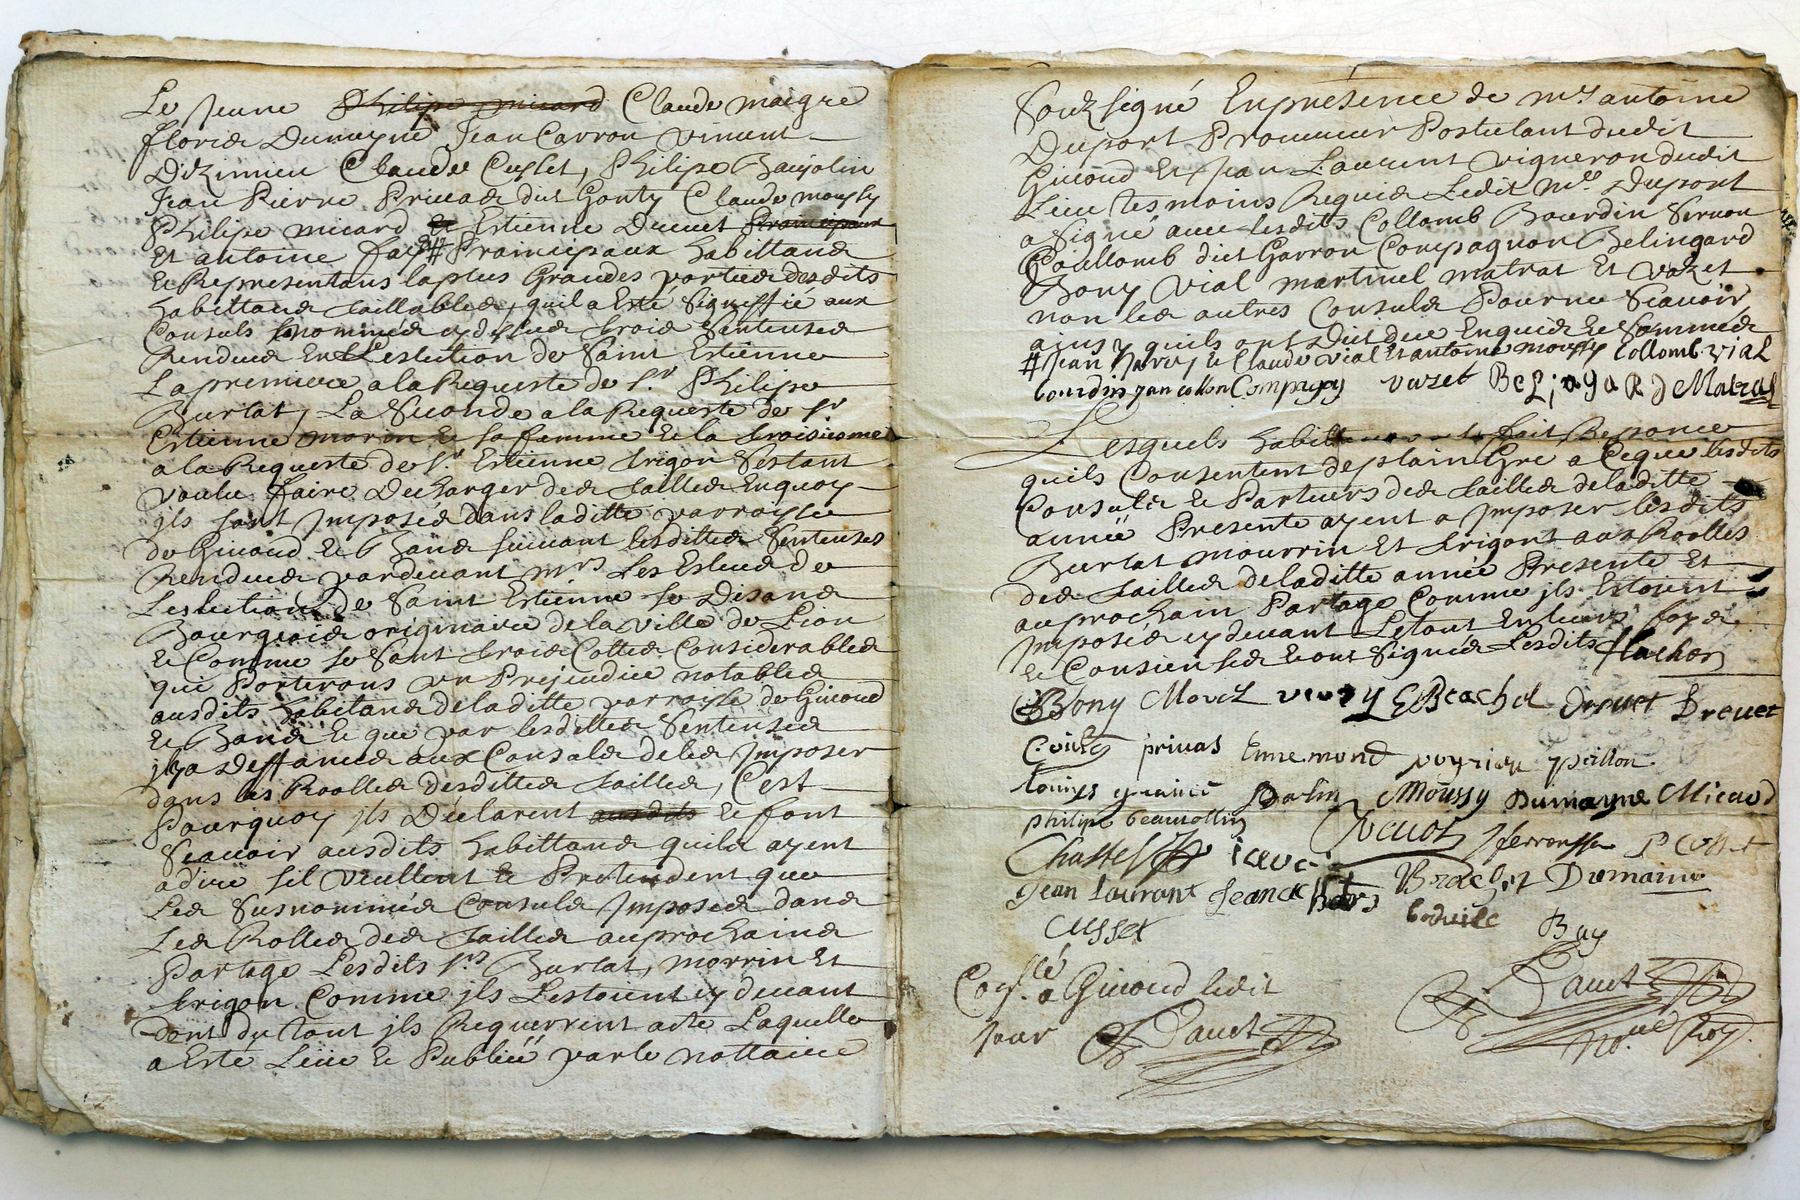 Le Jeune Philipe micard Claude maigre
floris Dumayne Jean Carron vincent
Dizimieu Claude Cusset, Philipe Baujolin
Jean Pierre Privas dit Gonty Claude moussy
Philipe micard et Estienne Drevet Prainsipaux
Et antoine fay # Prainsipaux habittans
Et Representans la plus Grandes parties desdits
habittans taillables, quil a Esté Signiffié aux
Consuls nommés cy dessus trois Santenses
Rendues En L'eslection de Saint Estienne
La premiere a la Requeste de Sr Philipe
Burlat, La Seconde a la Requeste de Sr
Estienne morin Et sa famme Et la troisiesme
a la Requeste de Sr Estienne trigon Sestant
voulu faire Descharger des tailles Enquoy
jls sont Jmposés dans laditte parroisse
de Givord Et Bans suivant lesdittes Sentenses
Rendues pardevant mrs Les Eslus de
Leslection de Saint Estienne se Disans
Bourgeois originaire de la ville de Lion
Et Comme se Sont trois Cottes Considerables
qui Porterons un Prejudice notables
ausdits habitans de laditte parroisse de Givord
Et Bans Et que par lesdittes Sentenses
jl y a Deffances aux Consuls de les Jmposer
dans les Roolles desdittes tailles, C'est
Pourquoy jls Déclarent ausdits Et font
Scavoir ausdits habittans quils ayent
a dire sil veullent Et Pretendent que
Les Susnommés Consuls Jmposés dans
Les Rolles des tailles au prochains
Partage Lesdits Srs Burlat, morrin Et
trigon Comme jls L'estoient cy devant
dont du tout jls Requerrent acte Laquelle
a Esté Leüe Et Publiéé par le nottaire
Soubsigné En presence de me antoine
Duport Procureur Postulant dudit
Givord Et Jean Laurent vigneron dudit
Lieu tesmoins Requis Ledit me Duport
a Signé avec lesdits Collomb Bourdin
Coullomb dict Garron Compagnon Belingard
Bony vial martinel matrat Et vazet
non les autres Consuls Pour ne Scavoir
ainsy quils ont Dit de ce Enquis Et Sommés
# Jean Et Claude vial Et antoine moussy Collomb vial
bourdin jean collon Compagnon vazet Belingard Matrat
Lesquels habittans ont fait Reponce
quils Consentent de plain Gre a Ceque lesdits
Consuls Et Parteurs des tailles de laditte
année Presente ayent a Jmposer lesdits
Burlat mourrin Et trigont aux Roolles
des tailles de laditte année Presente Et
au prochain Partage Comme jls Estoient
Jmposés cy devant Letout En leurs foy
Et Consiense Et ont Signés Lesdits flachon
Bony Brachet Drevet Drevet
privas Ennemond
Moussy Dumayne Micard
philipe beaujollin
Chastel
Jean Laurant Brachet Dumaine
Cusset Bay
Conslé a Givord ledit
jour Dauet
Dauet
nore Roy.